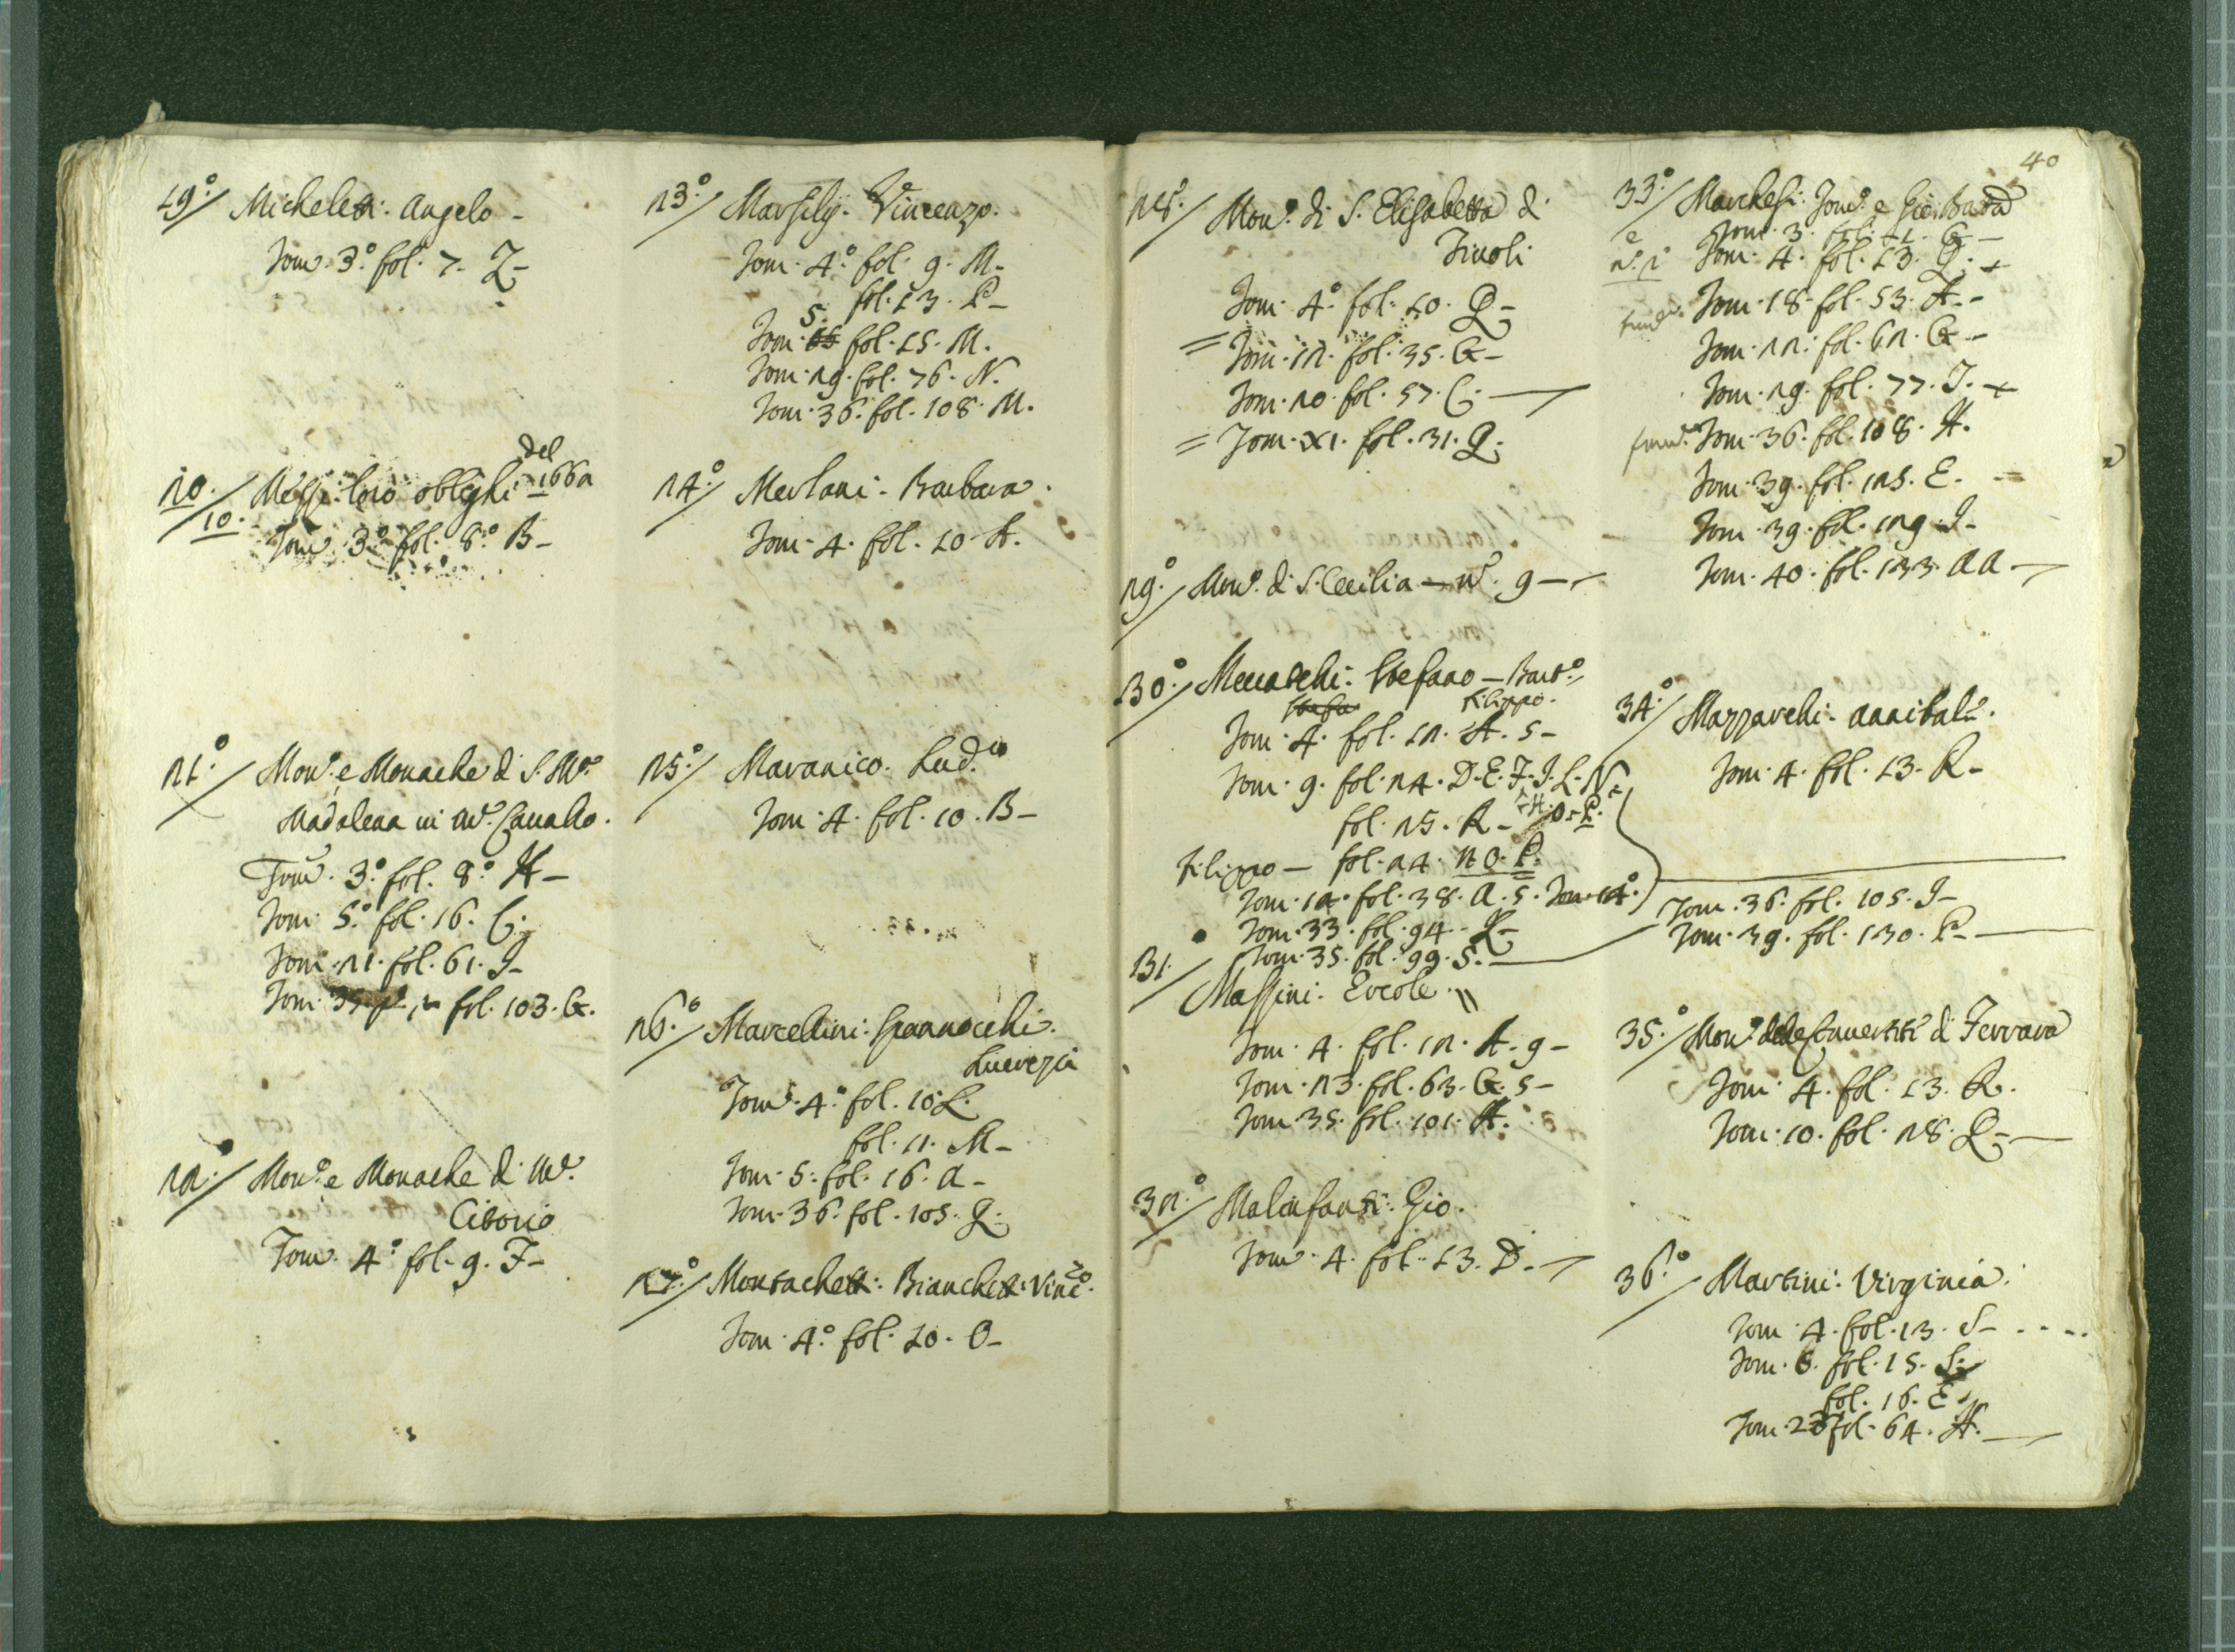 19.º/ Micheletti: Angelo -
Tom. 3.º fol. 7. Z-
20./10. Messe: loro oblighi del 1662
Tom. 3.º fol. 8.º B-
21.º/ Mon.º e Monache di S. M.ª
Madalena in M.te Cauallo.
Tom. 3.º fol. 8.º H-
Tom. 5.º fol. 16. C.
Tom. 21. fol. 61. I-
Tom. 35. fol. 103. G.
22./ Mon.º e Monache di M.te
Citorio
Tom. 4.º fol. 9. F-
23.º/ Marsilij. Vincenzo.
Tom. 4.º fol. 9. M-
fol. 13. P-
Tom. 5. fol. 15. M.
Tom. 29. fol. 76. N.
Tom. 36. fol. 108. M.
24.º/ Merlani. Barbara.
Tom. 4. fol. 10. A.
25.º/ Maranico. Lud.co
Tom. 4. fol. 10. B-
26.º/ Marcellini: Spannocchi.
Lucrezia
Tom. 4.º fol. 10. L.
fol. 11. M-
Tom. 5. fol. 16. A-
Tom. 36. fol. 105. Q.
27.º/ Montachetti: Bianchetti: Vinc.zo
Tom. 4.º fol. 10. O-
40
28.º/ Mon.º di S. Elisabetta di
Tiuoli
Tom. 4.º fol. 10. Q-
= Tom. 12. fol. 35. G-
Tom. 20. fol. 57. C.
= Tom. XI. fol. 31. Q.
29.º/ Mon.º di S. Cecilia - n.º 9-
30.º/ Mecatchi: Stefano - Bart.º
Filippo.
Tom. 4. fol. 12. A. 5-
Tom. 9. fol. 24. D. E. F. I. L. N.
fol. 25. R- H. O. P.
Filippo - fol. 24. N. O. P.
Tom. 12. fol. 38. A. 5. Tom. 14.
Tom. 33. fol. 94. Q-
Tom. 35. fol. 99. S.
Tom. 36. fol. 105. I-
Tom. 39. fol. 130. P-
31./ Massini: Ercole.
Tom. 4. fol. 12. A. 9-
Tom. 23. fol. 63. G. 5-
Tom. 35. fol. 101. A.
32.º/ Malinfanti: Gio.
Tom. 4. fol. 13. D.
33.º/ Marchesi: Tom.º e Gio: Batta
e Tom. 3. fol. G-
n.º 1 Tom. 4. fol. 13. Q.
Tom. 18. fol. 53. A-
Tom. 22. fol. 62. G-
Tom. 29. fol. 77. I.
Tom. 36. fol. 108. H.
Tom. 39. fol. 125. E.
Tom. 39. fol. 129. I-
Tom. 40. fol. 133. AA
34.º/ Mazzarchi. Annibale.
Tom. 4. fol. 13. R-
35.º/ Mon.º delle Conuertite di Ferrara
Tom. 4. fol. 13. R.
Tom. 10. fol. 28. Q-
36.º/ Martini: Virginia.
Tom. 4. fol. 13. S-
Tom. 5. fol. 15. S.
fol. 16. E
Tom. 23 fol. 64. H.